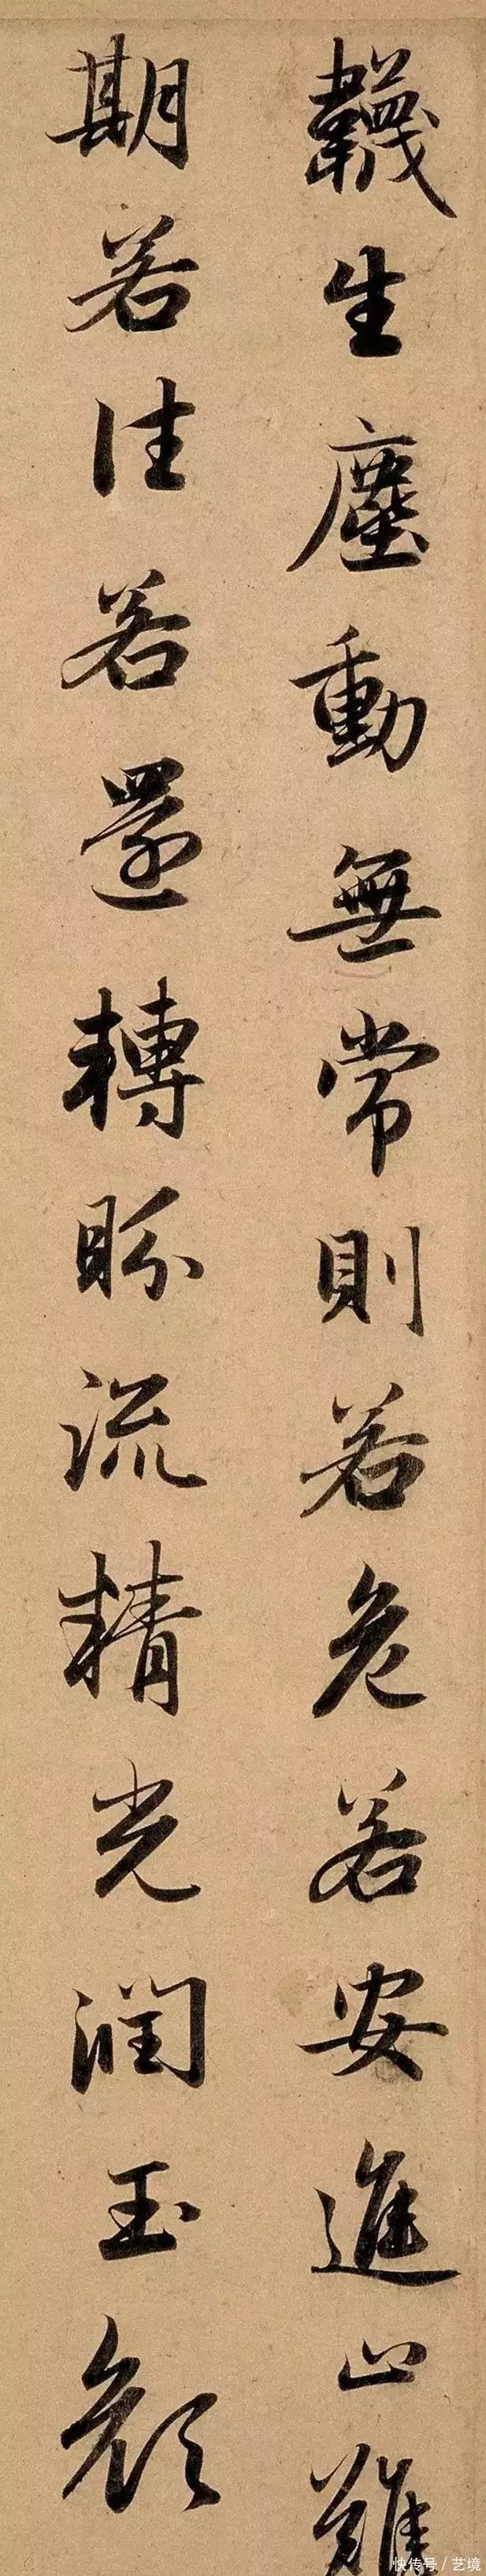 韈生塵動無常則若危若安進止難
期若往若還轉盼流精光潤玉顔
快传号/艺境